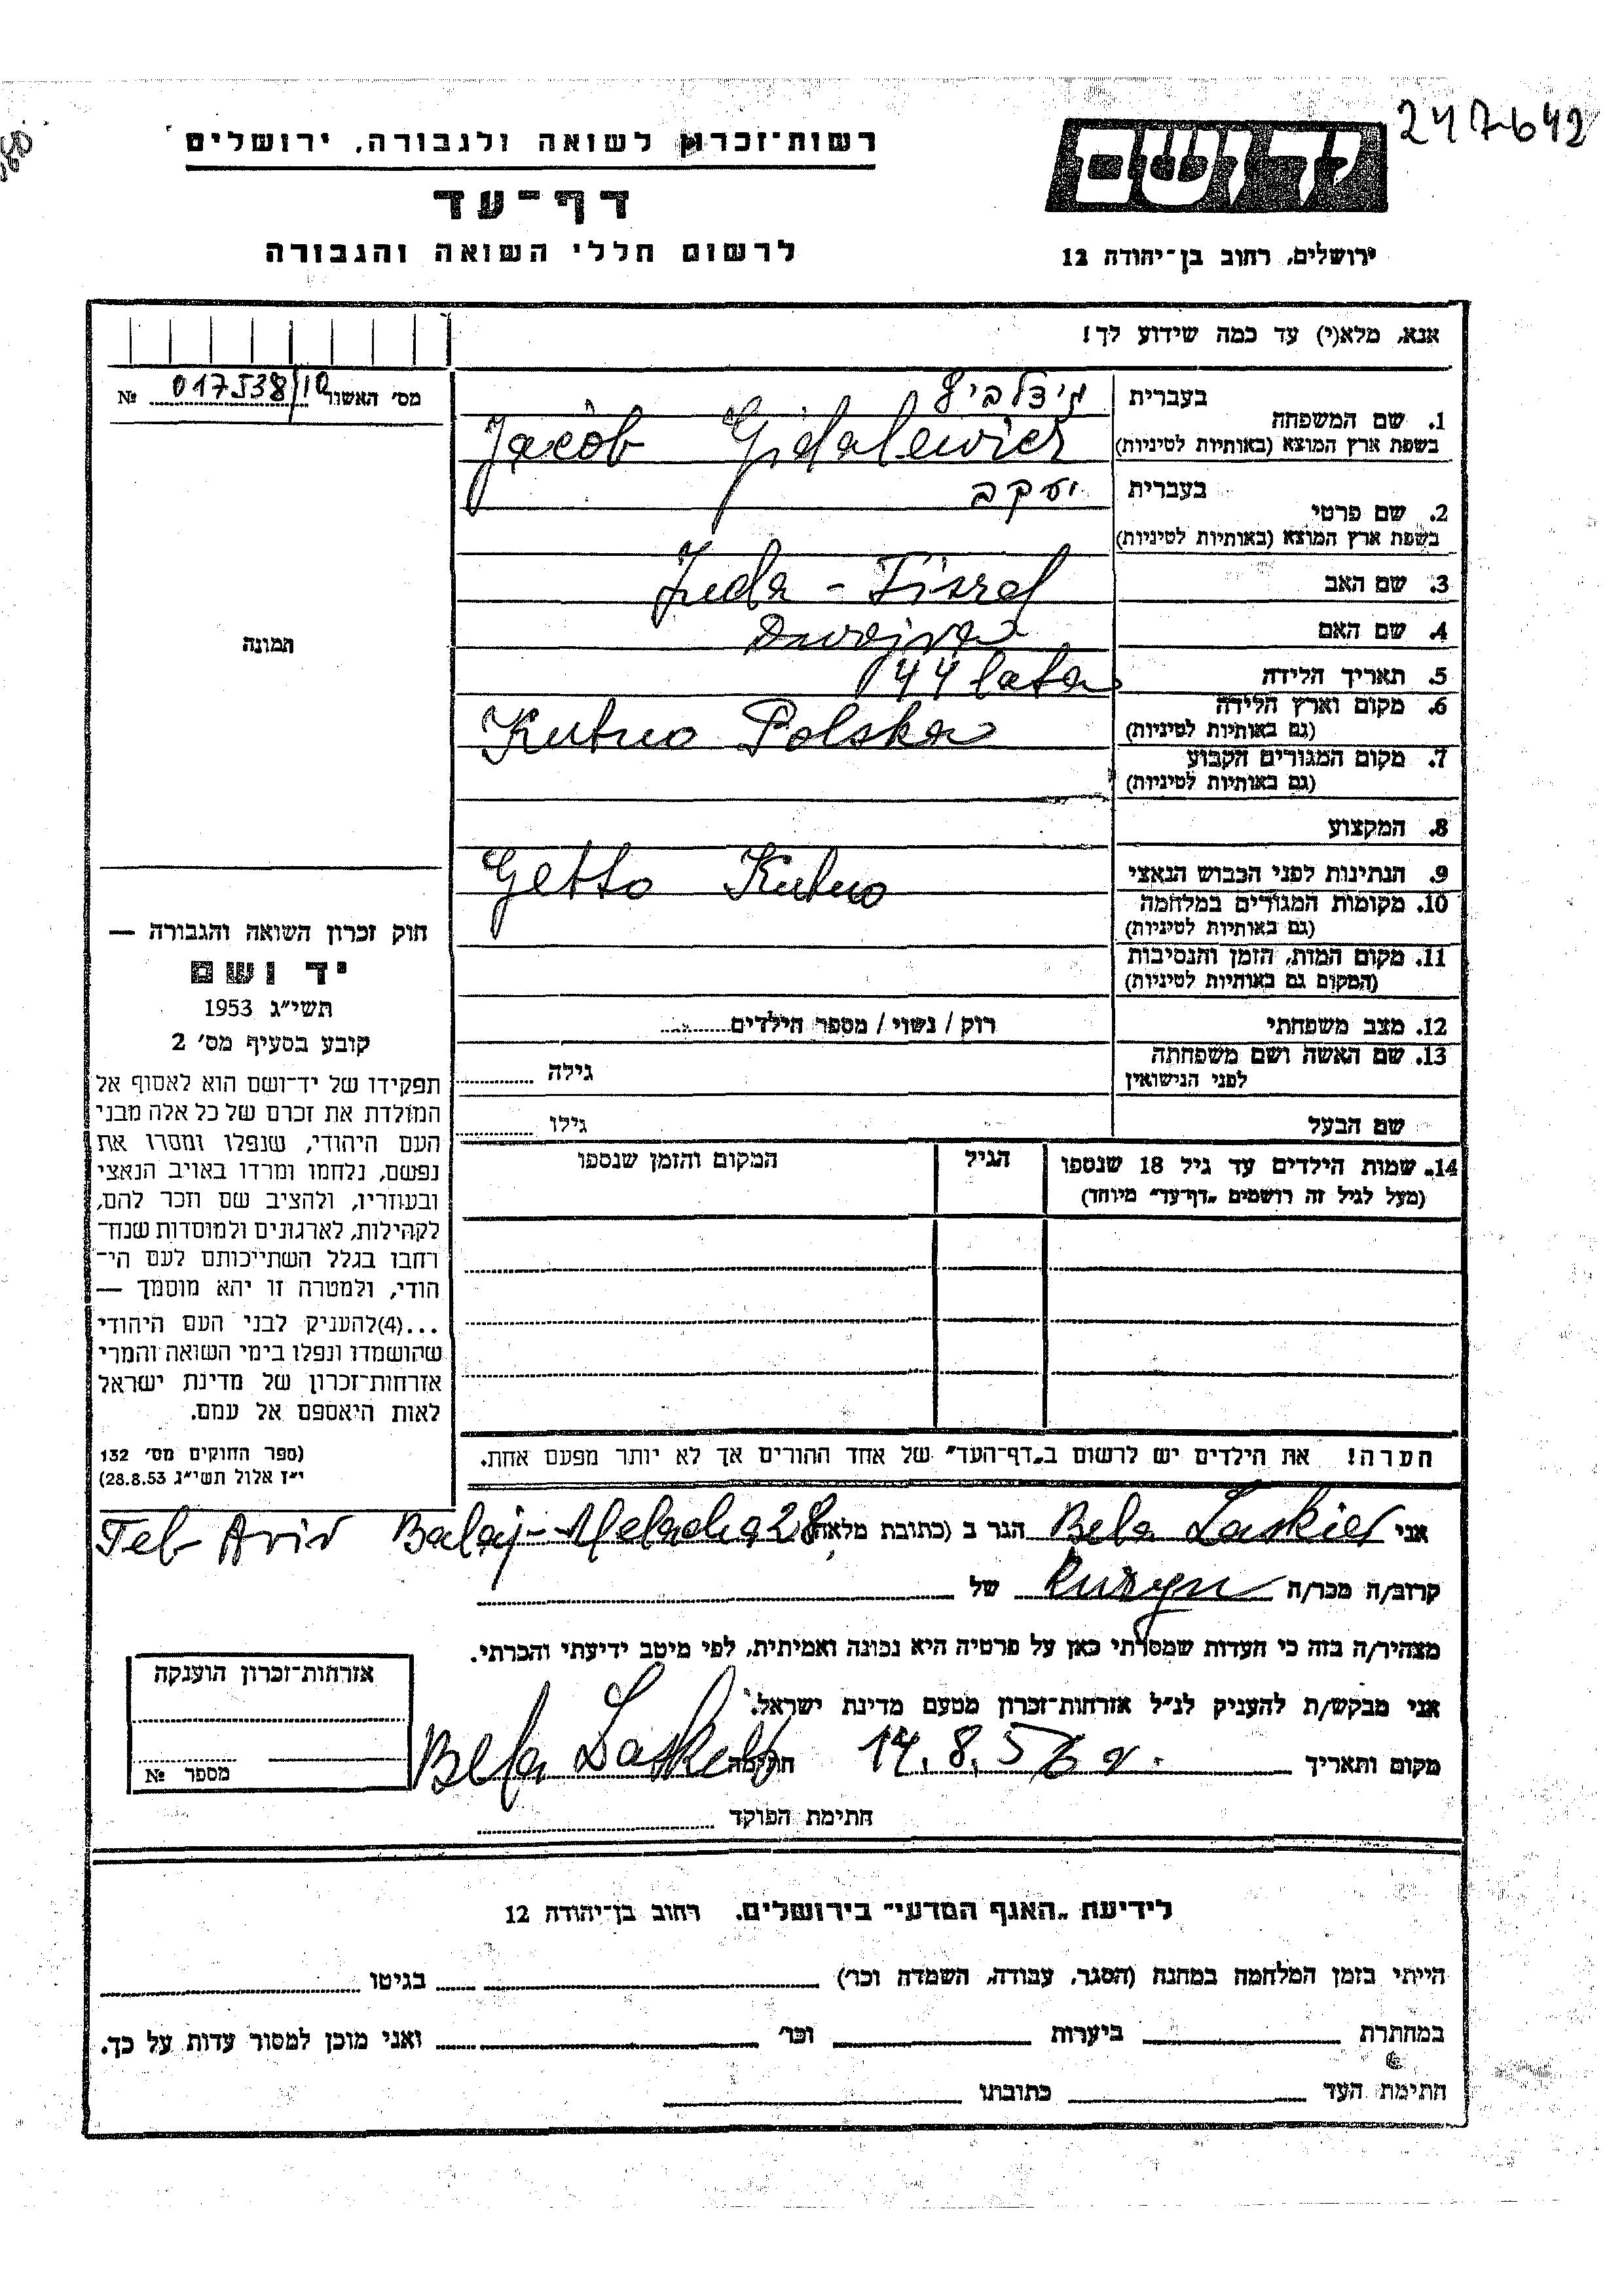 247642
רשות־זכרון לשואה ולגבורה, ירושלים
יד ושם
דף־עד
לרשום חללי השואה והגבורה
ירושלים, רחוב בן־יהודה 12
אנא, מלא(י) עד כמה שידוע לך!
מס' האשור 017538/10 №
תמונה
1. שם המשפחה בעברית גידלביץ
בשפת ארץ המוצא (באותיות לטיניות) Jacob Gidalewicz
2. שם פרטי בעברית יעקב
בשפת ארץ המוצא (באותיות לטיניות)
3. שם האב Juda - Jisrel
4. שם האם Dwojra
5. תאריך הלידה 44 lata
6. מקום וארץ הלידה
(גם באותיות לטיניות) Kutno Polska
7. מקום המגורים הקבוע
(גם באותיות לטיניות)
8. המקצוע
9. הנתינות לפני הכבוש הנאצי Getto Kutno
10. מקומות המגורים במלחמה
(גם באותיות לטיניות)
11. מקום המות, הזמן והנסיבות
(המקום גם באותיות לטיניות)
12. מצב משפחתי רוק / נשוי / מספר הילדים
13. שם האשה ושם משפחתה
לפני הנישואין גילה
שם הבעל גילו
14. שמות הילדים עד גיל 18 שנספו הגיל המקום והזמן שנספו
(מעל לגיל זה רושמים „דף־עד" מיוחד)
הערה! את הילדים יש לרשום ב„דף־העד" של אחד ההורים אך לא יותר מפעם אחת.
חוק זכרון השואה והגבורה —
יד ושם
תשי"ג 1953
קובע בסעיף מס' 2
תפקידו של יד־ושם הוא לאסוף אל
המולדת את זכרם של כל אלה מבני
העם היהודי, שנפלו ומסרו את
נפשם, נלחמו ומרדו באויב הנאצי
ובעוזריו, ולהציב שם וזכר להם,
לקהילות, לארגונים ולמוסדות שנח־
רחבו בגלל השתייכותם לעם הי־
הודי, ולמטרה זו יהא מוסמך —
...(4)להעניק לבני העם היהודי
שהושמדו ונפלו בימי השואה והמרי
אזרחות־זכרון של מדינת ישראל
לאות היאספם אל עמם.
(ספר החוקים מס' 132
י"ז אלול תשי"ג 28.8.53)
אני Bela Laskier הגר ב (כתובת מלאה) Tel Aviv 28
קרוב/ה מכר/ה Kuzyn של
מצהיר/ה בזה כי העדות שמסרתי כאן על פרטיה היא נכונה ואמיתית, לפי מיטב ידיעתי והכרתי.
אני מבקש/ת להעניק לנ"ל אזרחות־זכרון מטעם מדינת ישראל.
מקום ותאריך 14.8.56 חתימה Bela Laskier
חתימת הפוקד
אזרחות־זכרון הוענקה
מספר №
לידיעת „האגף המדעי" בירושלים. רחוב בן־יהודה 12
הייתי בזמן המלחמה במחנה (הסגר, עבודה, השמדה וכו') בגיטו
במחתרת ביערות וכו' ואני מוכן למסור עדות על כך.
חתימת העד כתובתו